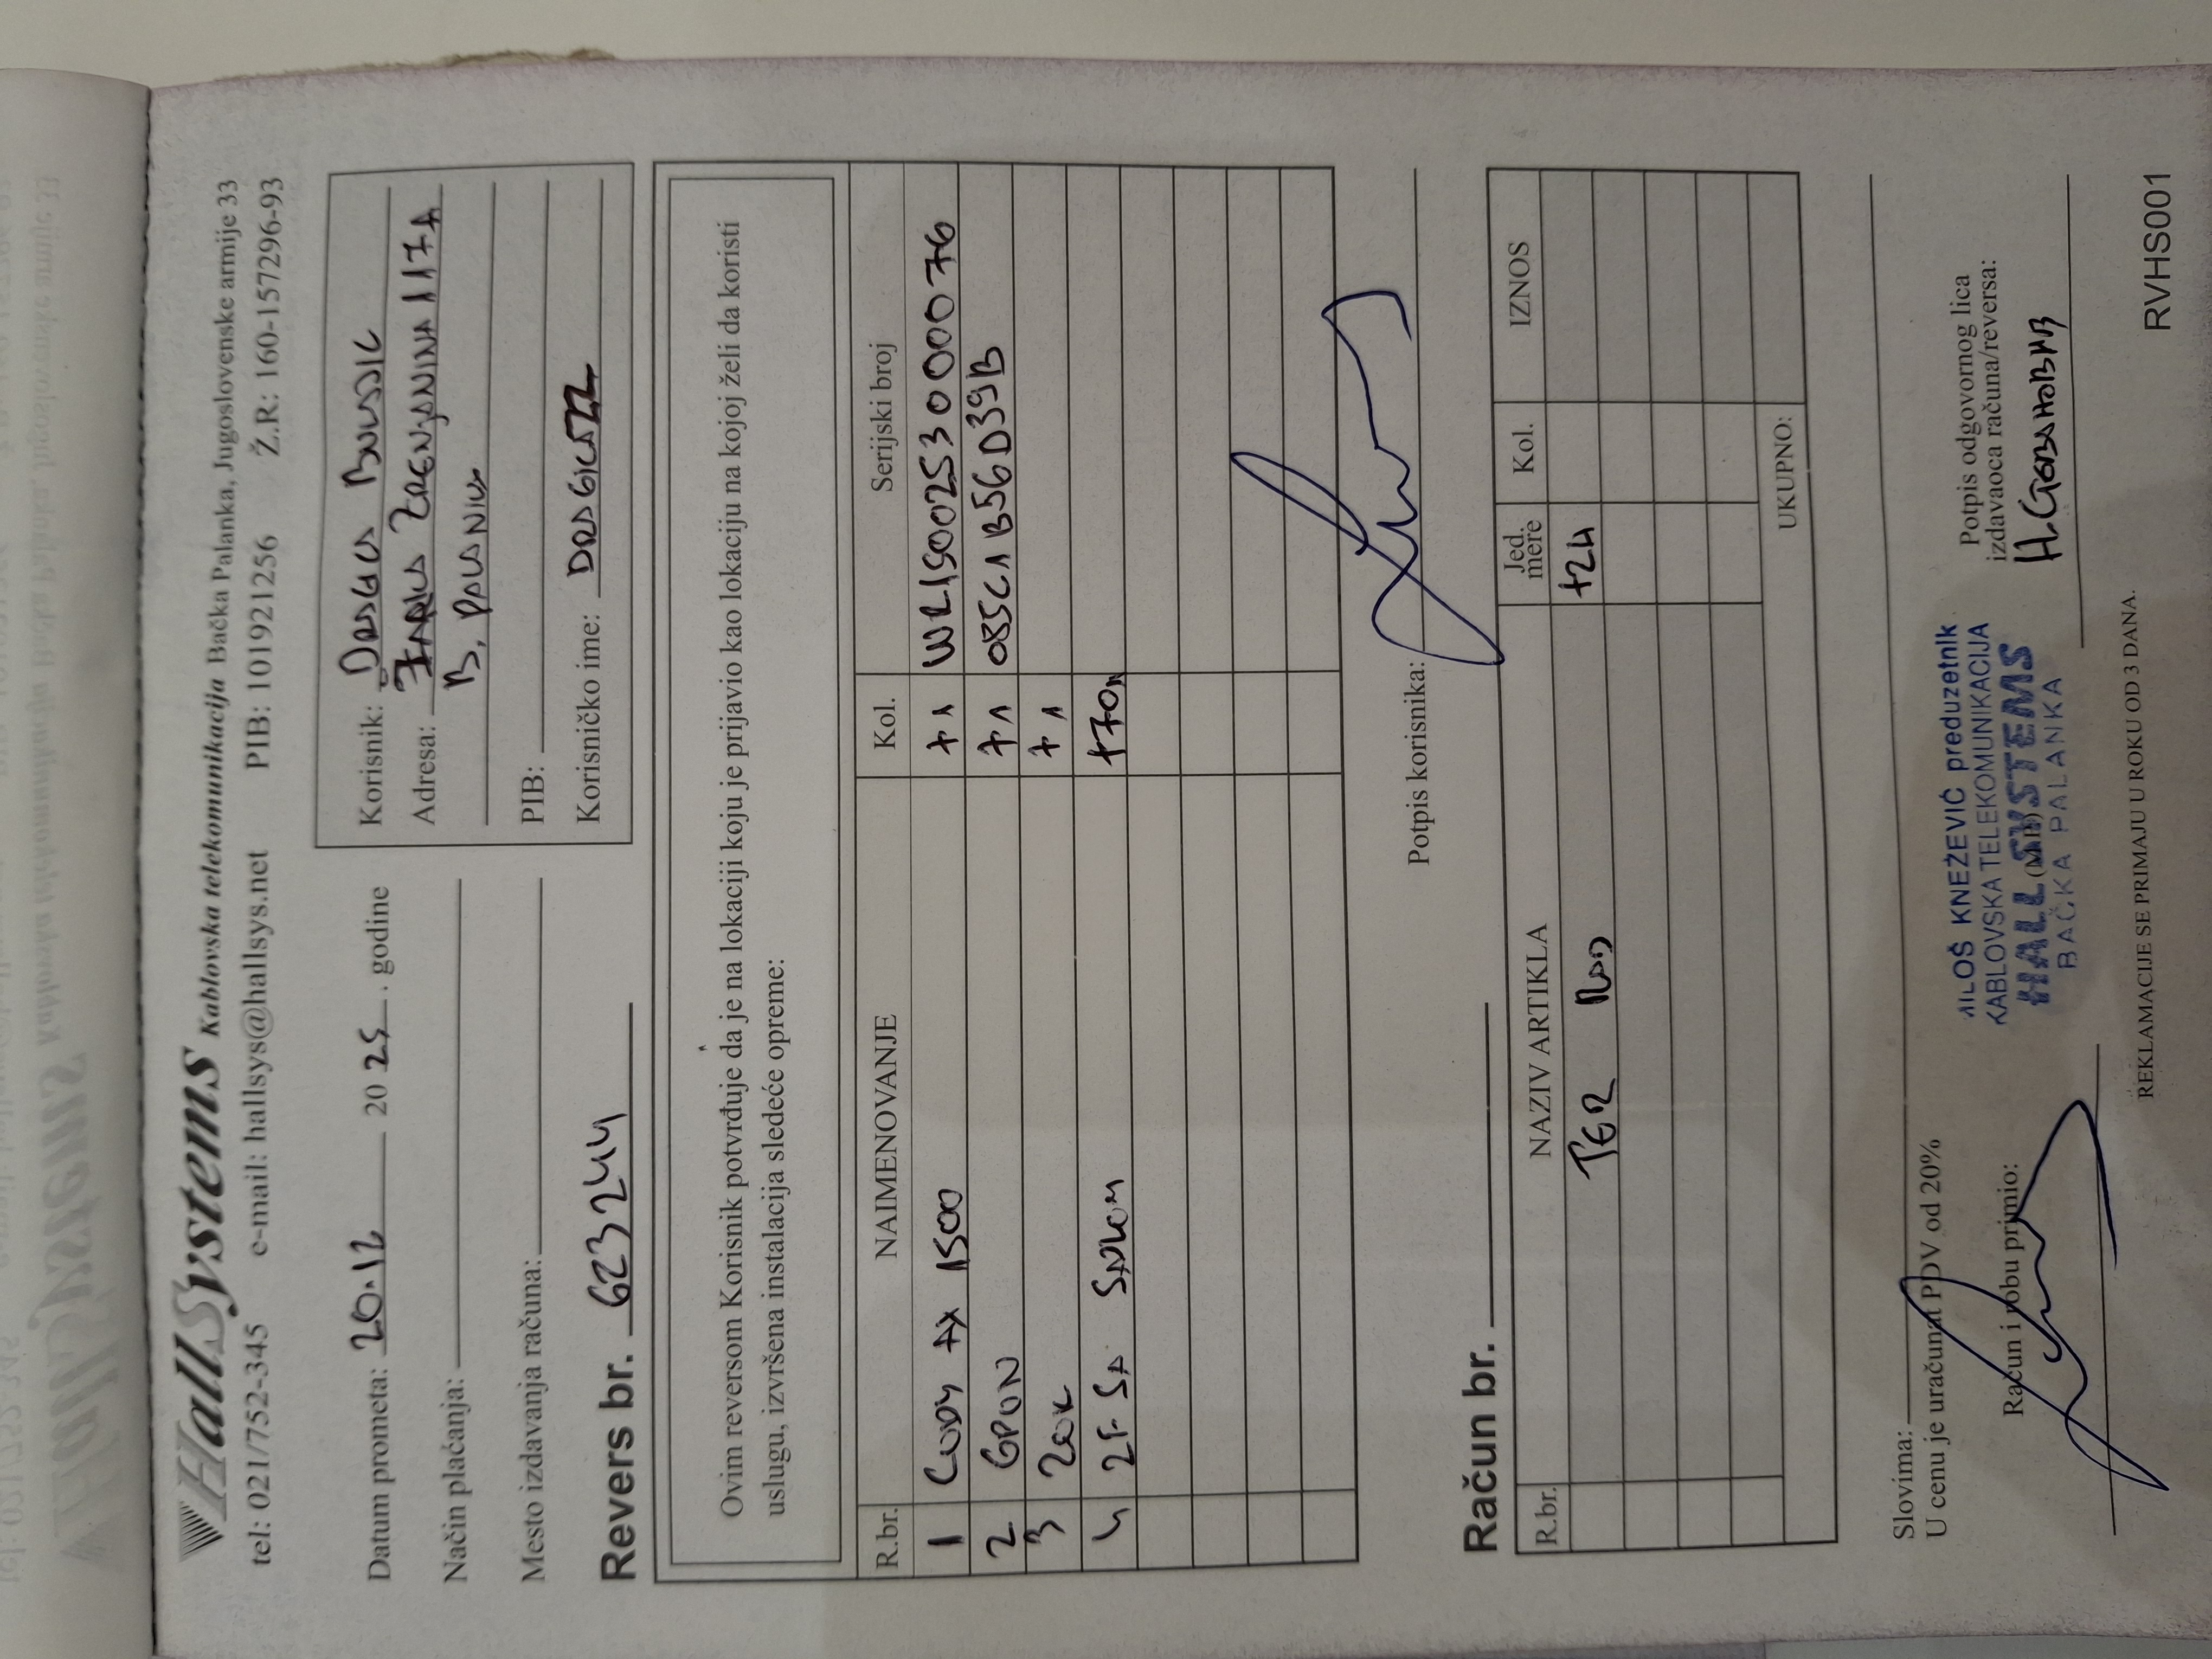 HallSystems Kablovska telekomunikacija Bačka Palanka, Jugoslovenske armije 33
tel: 021/752-345 e-mail: hallsys@hallsys.net PIB: 101921256 Ž.R: 160-157296-93
Datum prometa: 20.12 2025. godine
Način plaćanja:
Mesto izdavanja računa:
Korisnik: DRAGICA
Adresa: ŽARKA ZRENJANINA 117A
B. PALANKA
PIB:
Korisničko ime:
Revers br. 623244
Ovim reversom Korisnik potvrđuje da je na lokaciji koju je prijavio kao lokaciju na kojoj želi da koristi
uslugu, izvršena instalacija sledeće opreme:
R.br. NAIMENOVANJE Kol. Serijski broj
1 CUDY AX 1500 +1 WR15002530000076
2 GPON +1 085C1B56D39B
3 ZOOK +1
4 2F SA SAJLOM +70m
Potpis korisnika:
Račun br.
R.br. NAZIV ARTIKLA Jed. mere Kol. IZNOS
TER RAD +2H
UKUPNO:
Slovima:
U cenu je uračunat PDV od 20%
Račun i robu primio:
(M.P.)
MILOŠ KNEŽEVIĆ preduzetnik
KABLOVSKA TELEKOMUNIKACIJA
HALL SYSTEMS
BAČKA PALANKA
Potpis odgovornog lica
izdavaoca računa/reversa:
REKLAMACIJE SE PRIMAJU U ROKU OD 3 DANA.
RVHS001